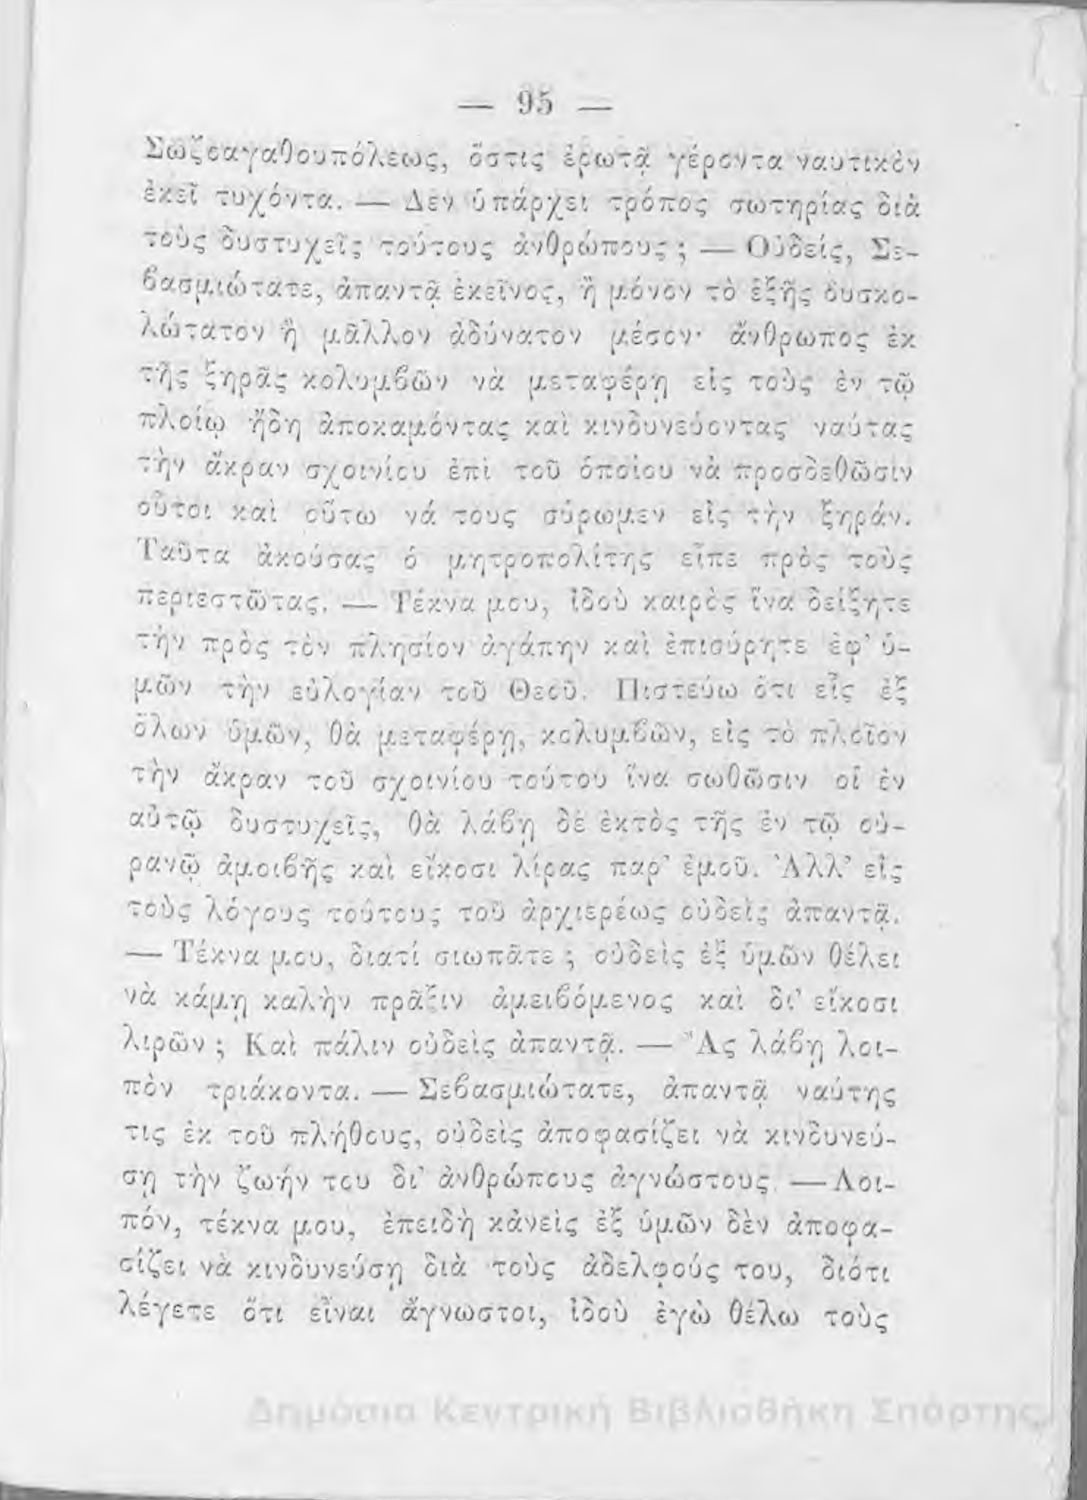 — 95 —
Σωζοαγαθουπόλεως, ὅστις ἐρωτᾷ γέροντα ναυτικὸν
ἐκεῖ τυχόντα. — Δὲν ὑπάρχει τρόπος σωτηρίας διὰ
τοὺς δυστυχεῖς τούτους ἀνθρώπους ; — Οὐδείς, Σε-
βασμιώτατε, ἀπαντᾷ ἐκεῖνος, ἢ μόνον τὸ ἑξῆς δυσκο-
λώτατον ἢ μᾶλλον ἀδύνατον μέσον· ἄνθρωπος ἐκ
τῆς ξηρᾶς κολυμβῶν νὰ μεταφέρῃ εἰς τοὺς ἐν τῷ
πλοίῳ ἤδη ἀποκαμόντας καὶ κινδυνεύοντας ναύτας
τὴν ἄκραν σχοινίου ἐπὶ τοῦ ὁποίου νὰ προσδεθῶσιν
οὗτοι καὶ οὕτω νά τους σύρωμεν εἰς τὴν ξηράν.
Ταῦτα ἀκούσας ὁ μητροπολίτης εἶπε πρὸς τοὺς
περιεστῶτας. — Τέκνα μου, ἰδοὺ καιρὸς ἵνα δείξητε
τὴν πρὸς τὸν πλησίον ἀγάπην καὶ ἐπισύρητε ἐφ' ὑ-
μῶν τὴν εὐλογίαν τοῦ Θεοῦ. Πιστεύω ὅτι εἷς ἐξ
ὅλων ὑμῶν, θὰ μεταφέρῃ, κολυμβῶν, εἰς τὸ πλοῖον
τὴν ἄκραν τοῦ σχοινίου τούτου ἵνα σωθῶσιν οἱ ἐν
αὐτῷ δυστυχεῖς, θὰ λάβῃ δὲ ἐκτὸς τῆς ἐν τῷ οὐ-
ρανῷ ἀμοιβῆς καὶ εἴκοσι λίρας παρ' ἐμοῦ. Ἀλλ' εἰς
τοὺς λόγους τούτους τοῦ ἀρχιερέως οὐδεὶς ἀπαντᾷ.
— Τέκνα μου, διατί σιωπᾶτε ; οὐδεὶς ἐξ ὑμῶν θέλει
νὰ κάμῃ καλὴν πρᾶξιν ἀμειβόμενος καὶ δι' εἴκοσι
λιρῶν ; Καὶ πάλιν οὐδεὶς ἀπαντᾷ. — Ἂς λάβῃ λοι-
πὸν τριάκοντα. — Σεβασμιώτατε, ἀπαντᾷ ναύτης
τις ἐκ τοῦ πλήθους, οὐδεὶς ἀποφασίζει νὰ κινδυνεύ-
σῃ τὴν ζωήν του δι' ἀνθρώπους ἀγνώστους. — Λοι-
πόν, τέκνα μου, ἐπειδὴ κἀνεὶς ἐξ ὑμῶν δὲν ἀποφα-
σίζει νὰ κινδυνεύσῃ διὰ τοὺς ἀδελφούς του, διότι
λέγετε ὅτι εἶναι ἄγνωστοι, ἰδοὺ ἐγὼ θέλω τοὺς
Δημόσια Κεντρική Βιβλιοθήκη Σπάρτης